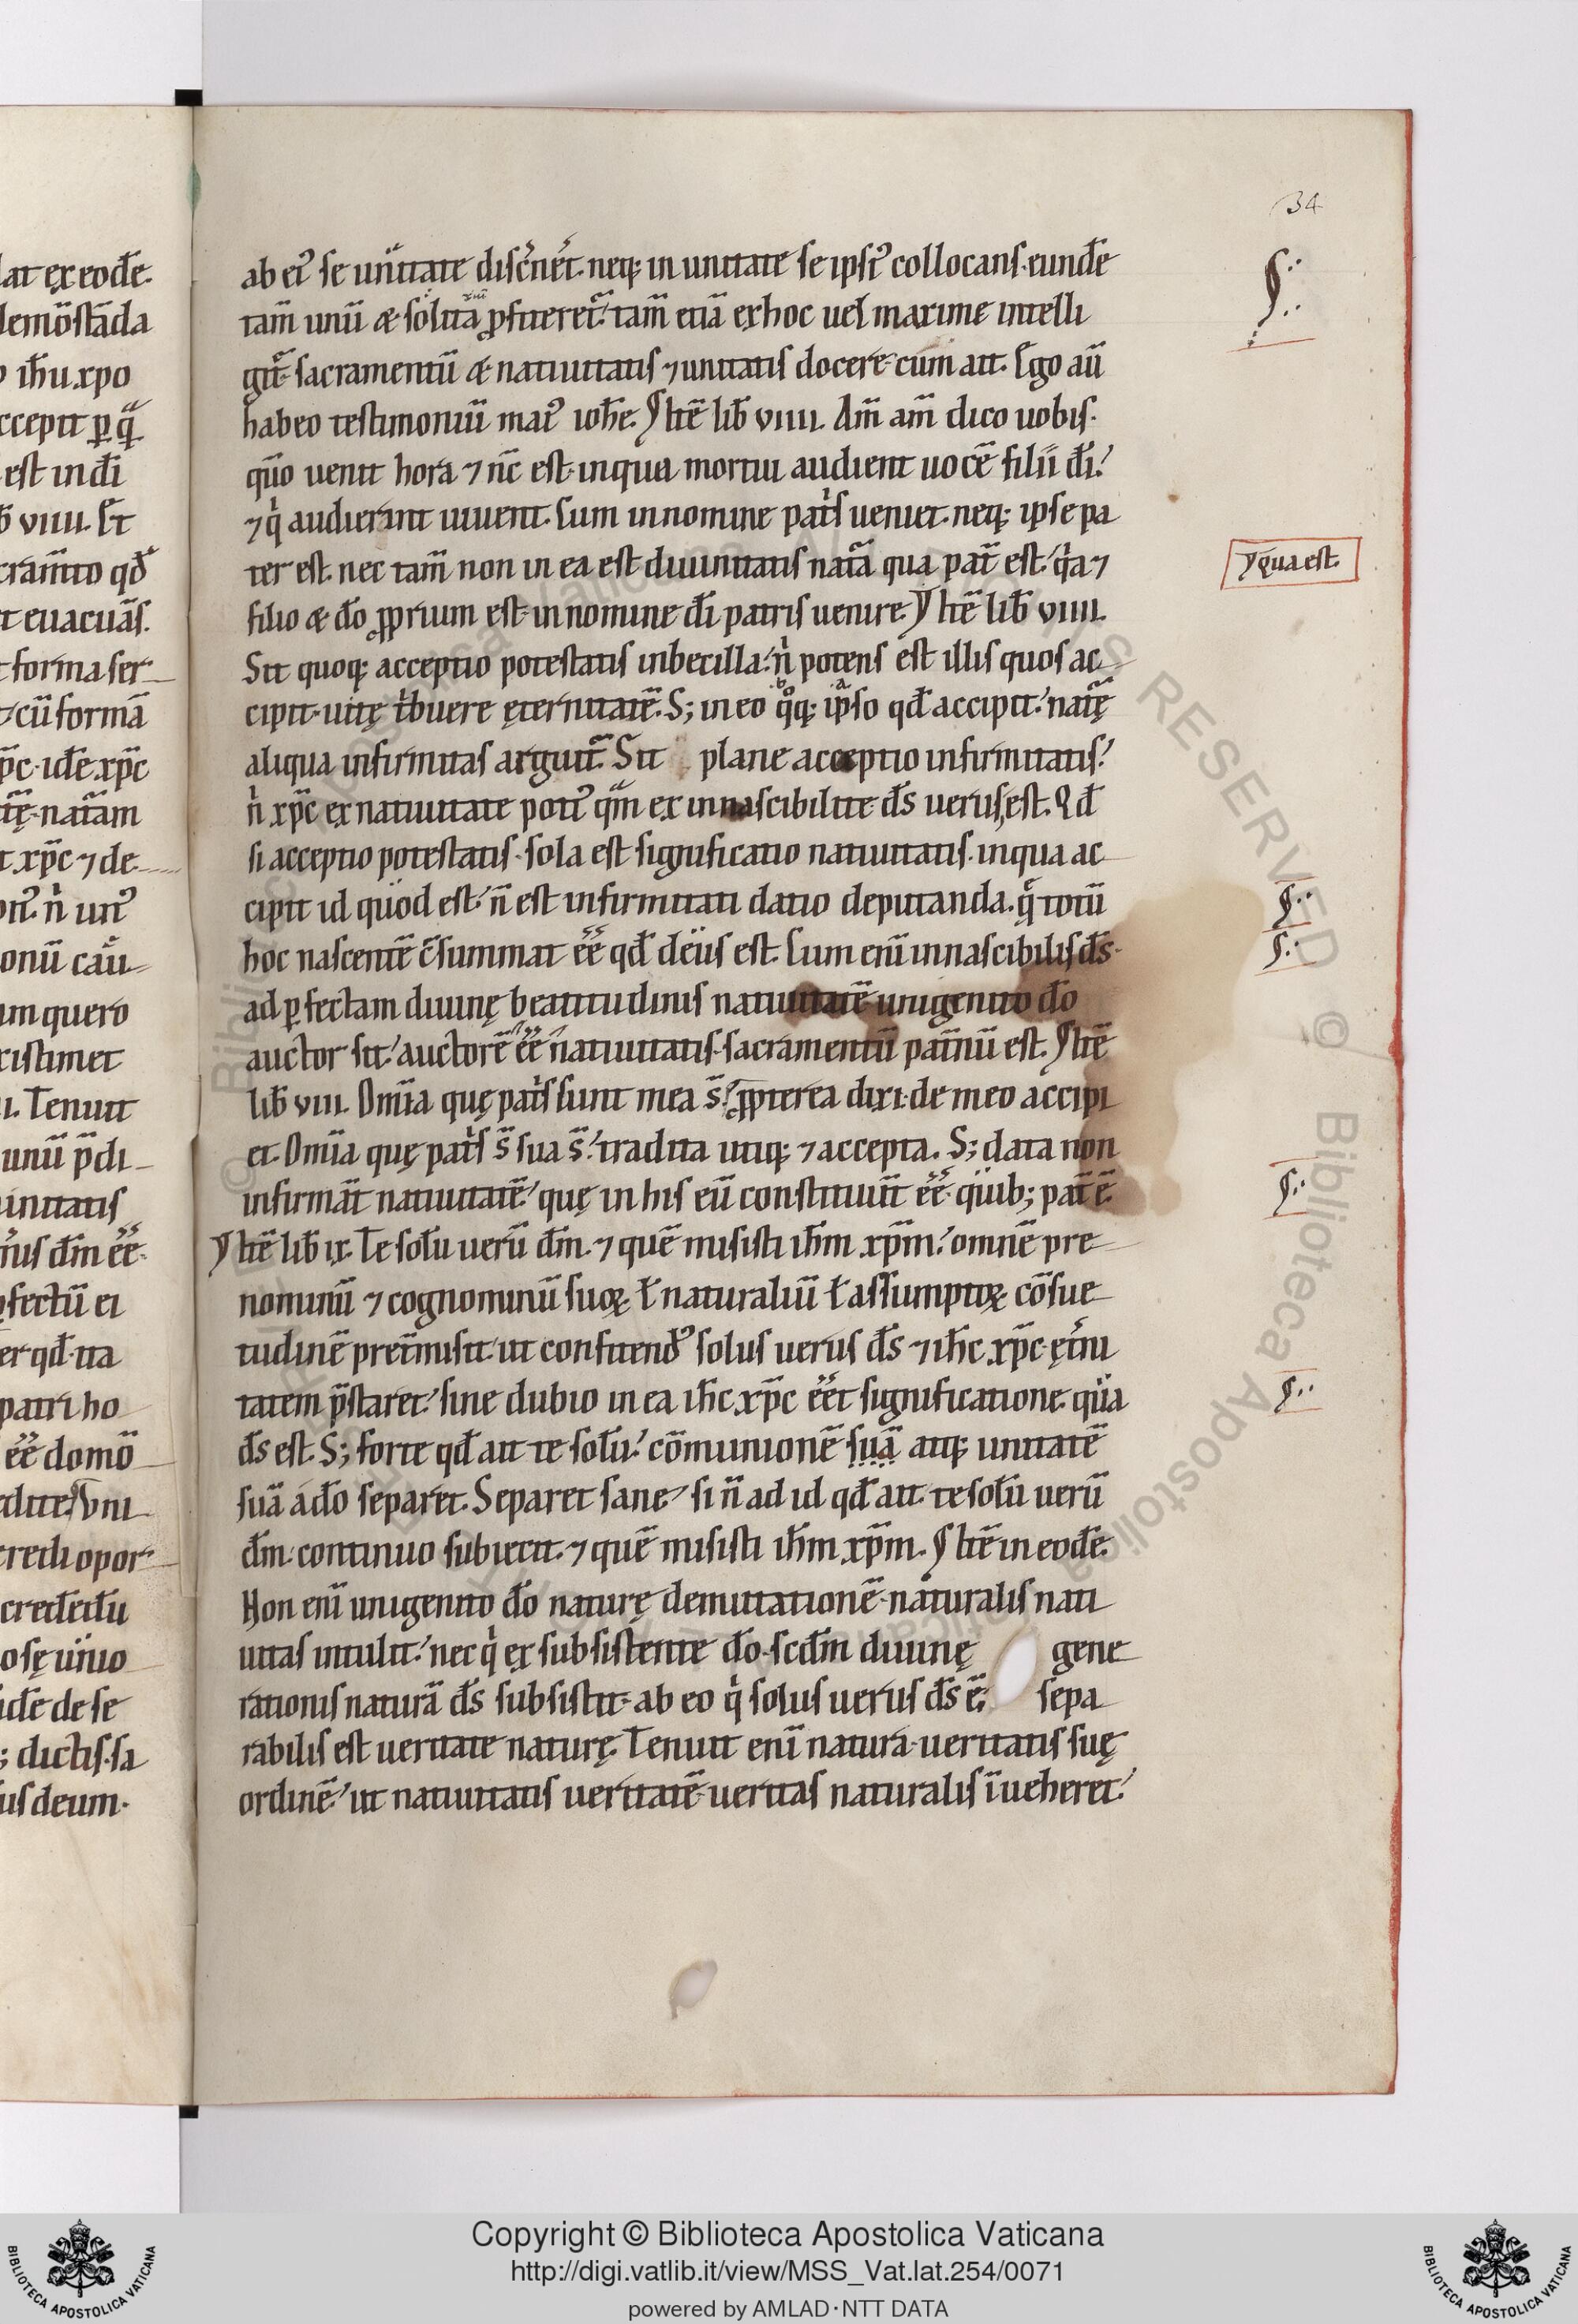 34
lat ex eodē.
demōstāda
ih̄u xp̄o
ccepit ꝑ qͣ
est in dī
viiii. Et
crāmto qđ
t euacuās.
forma ser
cū formā
p̄c. idē xp̄c
tę. natam
t xp̄c ⁊ de
onū cau
um quero
xistimet
Tenuit
unū p̄di
initatis
nus dm̄ ēē.
fectū ei
er qđ. ita
patri ho
ēē domō
credi opor
o sę unio
idē de se
; dictis. sa
us deum.
ab eī se unitate discn̄et. neq; in unitate se ipsī collocans. eundē
tam̄ unū & solitā ꝓfiteret᷑. tam̄ etiā ex hoc uel maxime intelli
git᷑. sacramentū & natiuitatis ⁊ unitatis docere. cum ait. Ego aū
habeo testimoniū maī ioh̄e. Itē lib̄ viiii. Am̄ am̄ dico uobis.
qn̄o uenit hora ⁊ nc̄ est. in qua mortui audient uocē filii dī.
⁊ qͥ audierint uiuent. Cum in nomine patͥs ueniet. neq; ipse pa
ter est. nec tam̄ non in ea est diuinitatis natā qua pat̄ est. qͥa ⁊
⁊ qua est.
filio & dō ꝓprium est. in nomine dī patris uenire. Itē lib̄ viiii.
Sit quoq; acceptio potestatis inbecilla. nͥ potens est illis quos ac
cipit. uitę tͥbuere ęternitatē. S; in eo qͦq; ipso qđ accipit. natę
aliqua infirmitas arguit᷑. Sit plane acceptio infirmitatis.
nͥ xp̄c ex natiuitate potī qͣm ex innascibilite. ds̄ uerus est. Qđ
si acceptio potestatis. sola est significatio natiuitatis. in qua ac
cipit id quod est. n̄ est infirmitati datio deputanda. q̄ totū
hoc nascentē c̄summat ēē qđ deus est. Cum enī innascibilis ds̄.
ad ꝑfectam diuinę beatitudinis natiuitatē unigenito dō
auctor sit. auctorē ēē natiuitatis. sacramentū pat̄nū est. Itē
lib̄ viii. Omīa quę patͥs sunt mea s̄. ꝓpterea dixi. de meo accipi
et. Omīa quę patͥs s̄ sua s̄. tradita utiq; ⁊ accepta. S; data non
infirmāt natiuitatē. quę in his eū constituit̄ ēē. quib; pat̄ ē.
Itē lib̄ ix. Te solū uerū dm̄. ⁊ quē misisti ih̄m xp̄m. omnē pre
nominū ⁊ cognominū suoꝝ ł naturaliū ł assumptoꝝ cōsue
tudinē pret̄misit. ut confitendī solus uerus ds̄ ⁊ ih̄c xp̄c. ęt̄ni
tatem p̄staret. sine dubio in ea ih̄c xp̄c ēēt significatione. qua
ds̄ est. S; forte qđ ait te solū. cōmunionē suā atq; unitatē
suā a dō separet. Separet sane. si n̄ ad id qđ ait. te solū uerū
dm̄. continuo subiecit. ⁊ quē misisti ih̄m xp̄m. Itē in eodē.
Non enī unigenito dō naturę demutationē. naturalis nati
uitas intulit. nec qͥ ex subsistente dō. scdm̄ diuinę gene
rationis naturā ds̄ subsistit. ab eo qͥ solus uerus ds̄ ē. sepa
rabilis est ueritate naturę. Tenuit enī natura. ueritatis suę
ordinē. ut natiuitatis ueritatē. ueritas naturalis īueheret.
© Biblioteca Apostolica Vaticana
Copyright © Biblioteca Apostolica Vaticana
http://digi.vatlib.it/view/MSS_Vat.lat.254/0071
powered by AMLAD·NTT DATA
BIBLIOTECA APOSTOLICA VATICANA
BIBLIOTECA APOSTOLICA VATICANA